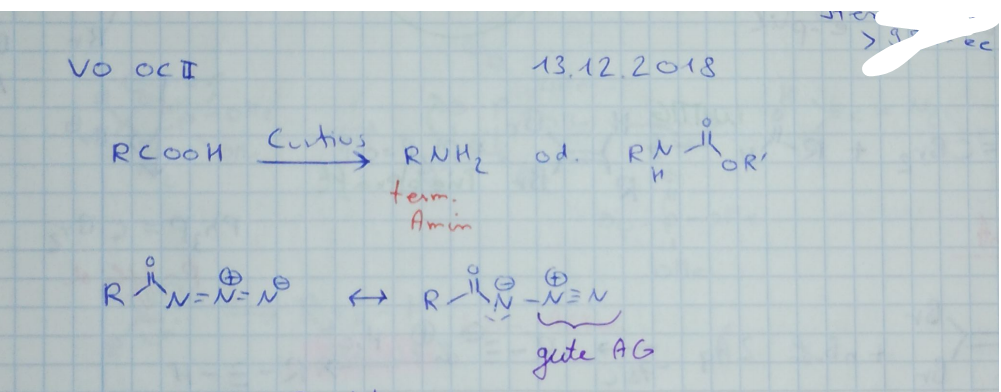 VO OC II 13.12.2018
RCOOH Curtius → RNH₂ od. R N H O OR'
term.
Amin
R O N=N⊕=N⊖ ↔ R O N⊖–N⊕≡N
gute AG